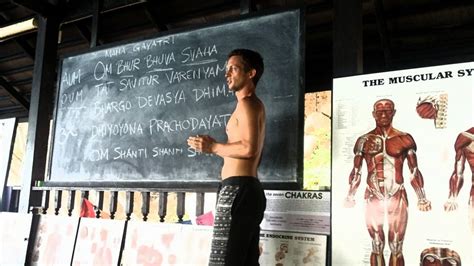 MAHA GAYATRI
AUM
OM BHUR BHUVA SVAHA
TAT SAVITUR VARENYAM
BHARGO DEVASYA DHIM
DHIYOYONA PRACHODAYAT
OM SHANTI SHANTI SHA
THE MUSCULAR SYSTEM
CHAKRAS
THE ENDOCRINE SYSTEM